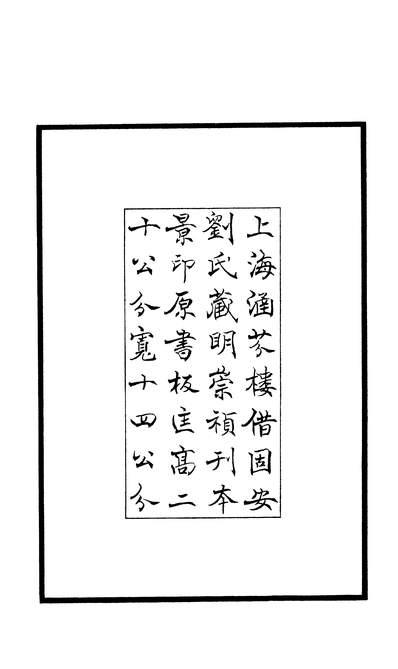 上海涵芬樓借固安
劉氏藏明崇禎刊本
景印原書板匡高二
十公分寬十四公分